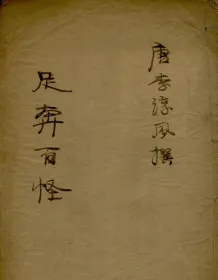 唐李淳风撰
足奔百怪